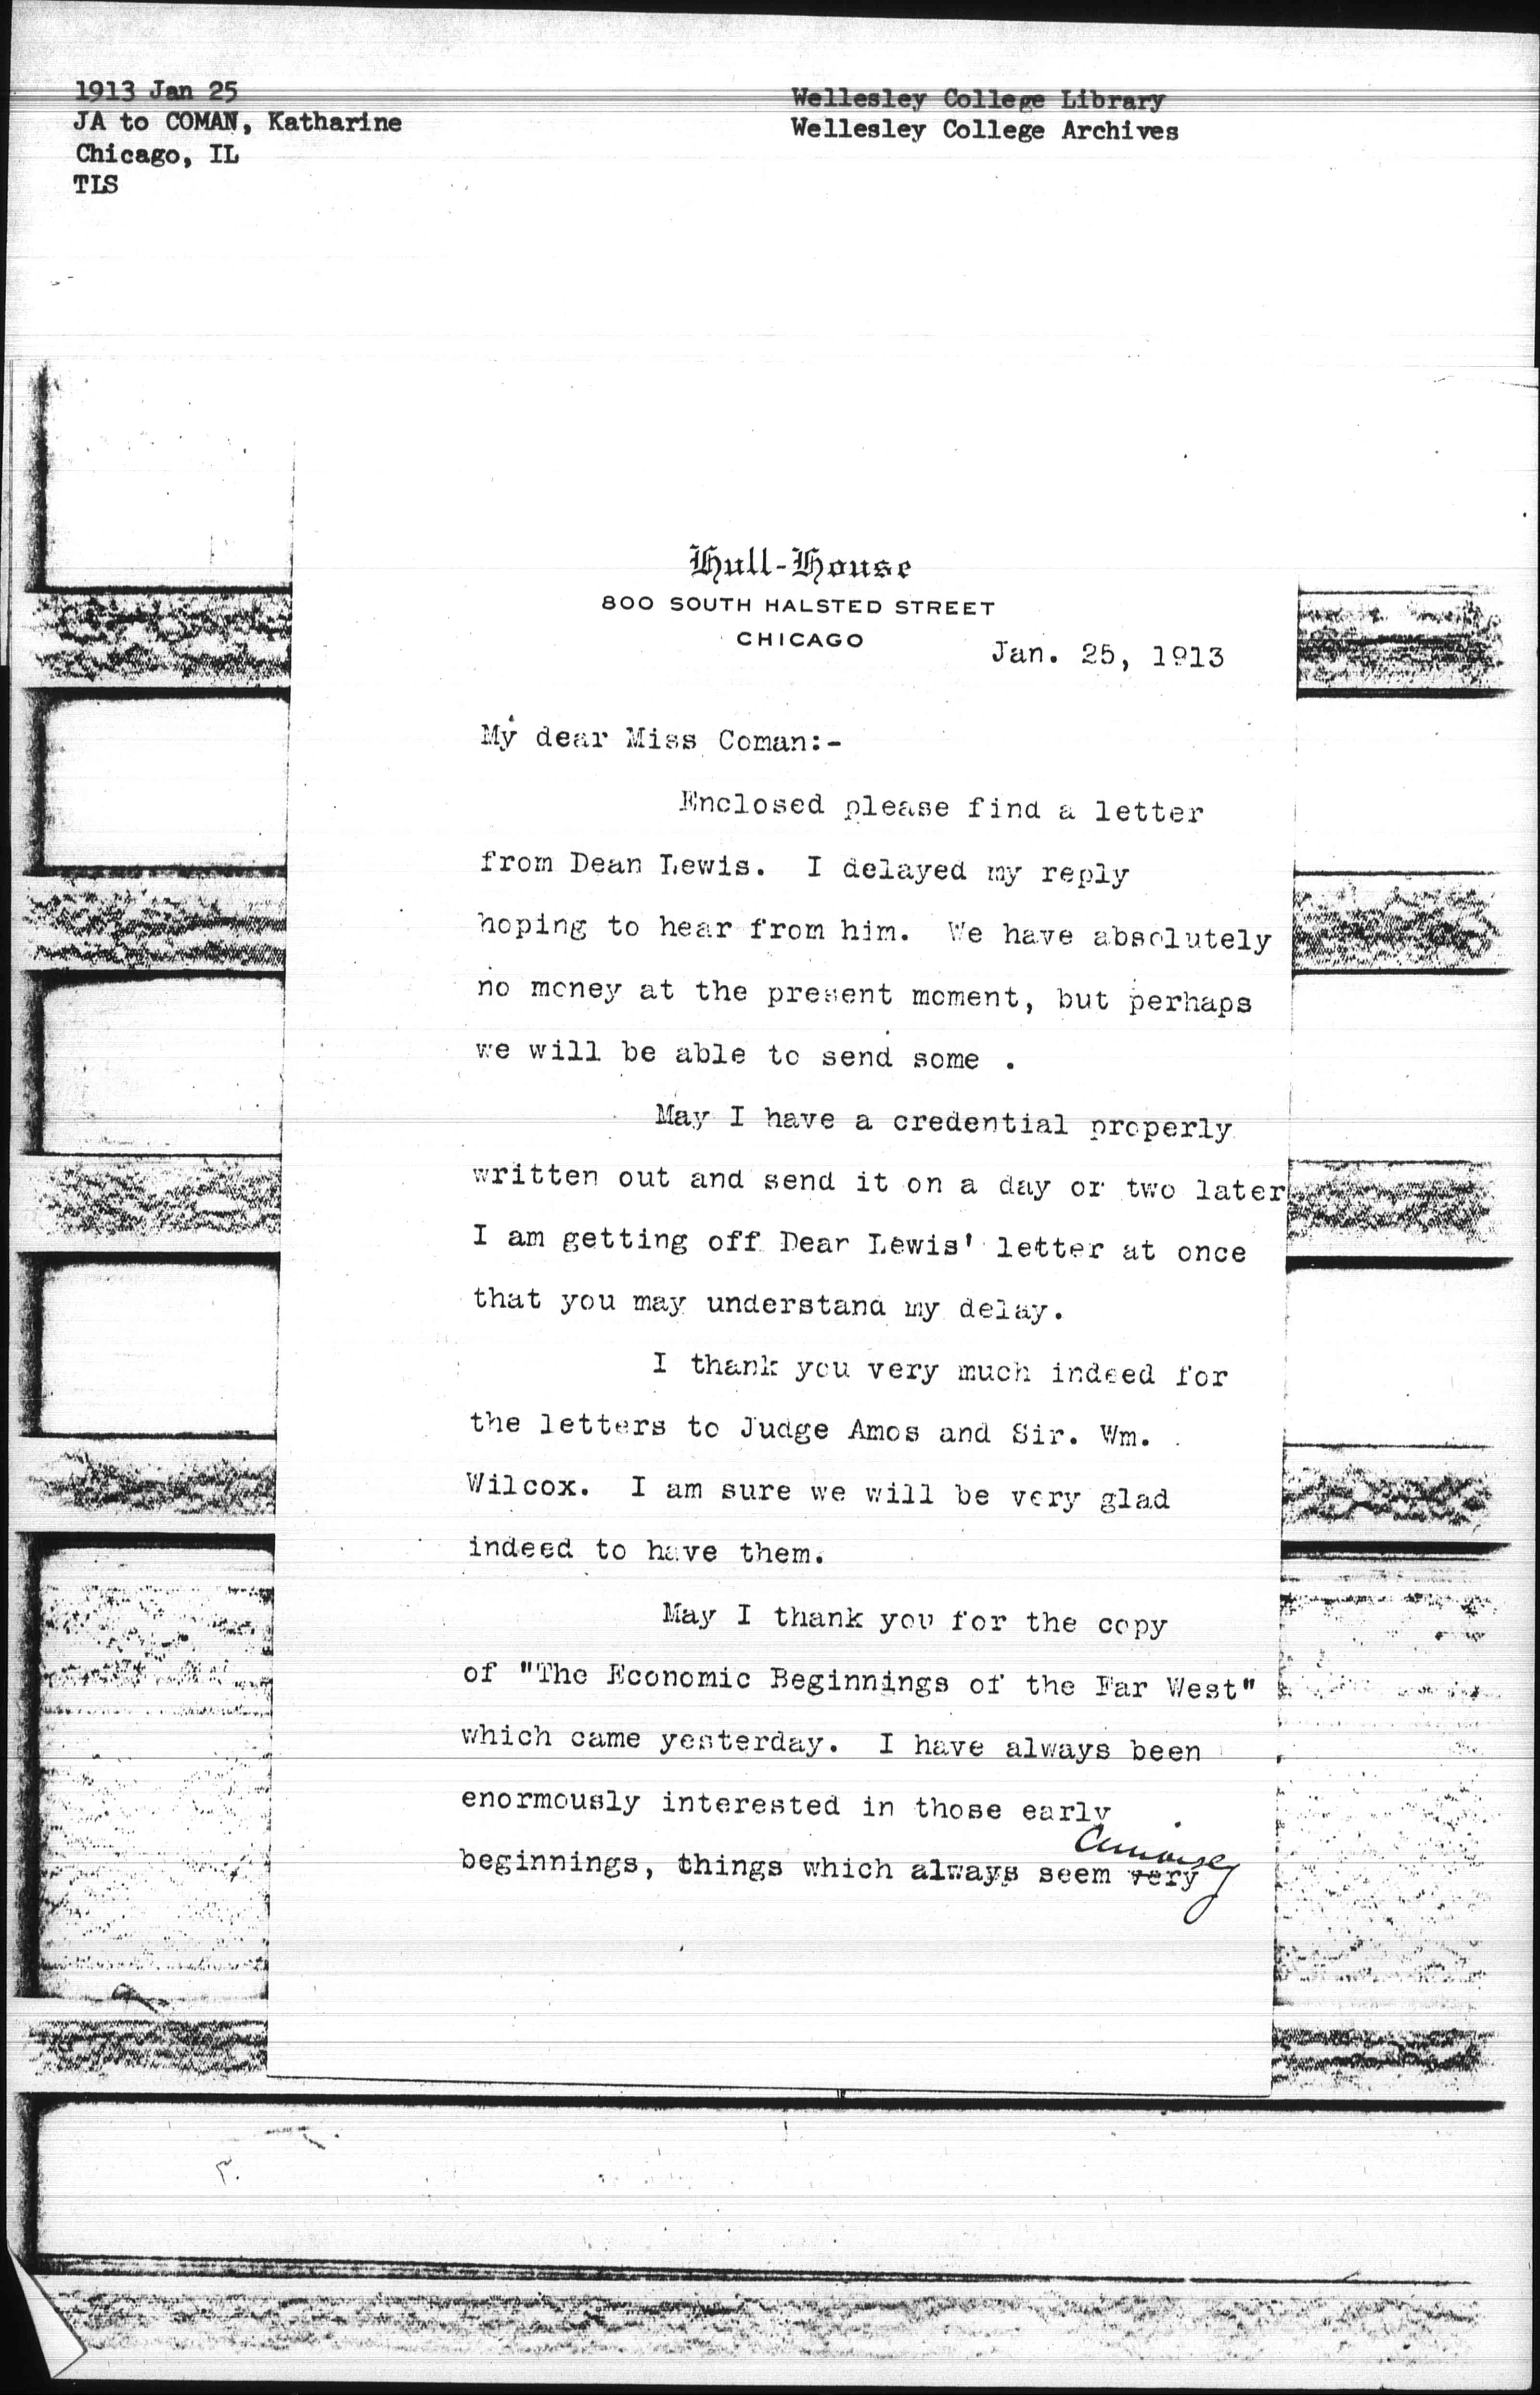 1913 Jan 25
JA to COMAN, Katharine
Chicago, IL
TLS
Wellesley College Library
Wellesley College Archives
Hull-House
800 SOUTH HALSTED STREET
CHICAGO
Jan. 25, 1913
My dear Miss Coman:-
Enclosed please find a letter
from Dean Lewis. I delayed my reply
hoping to hear from him. We have absolutely
no money at the present moment, but perhaps
we will be able to send some .
May I have a credential properly
written out and send it on a day or two later
I am getting off Dear Lewis' letter at once
that you may understand my delay.
I thank you very much indeed for
the letters to Judge Amos and Sir. Wm.
Wilcox. I am sure we will be very glad
indeed to have them.
May I thank you for the copy
of "The Economic Beginnings of the Far West"
which came yesterday. I have always been
enormously interested in those early
beginnings, things which always seem very